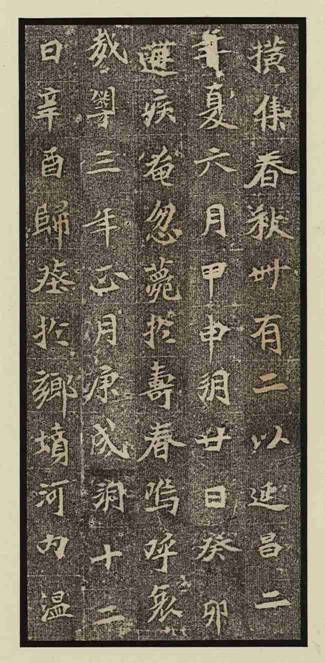 橫集春秋卌有二以延昌二
年夏六月甲申朔廿日癸卯
遘疾奄忽薨於壽春嗚呼哀
哉粵三年正月庚戌朔十二
日辛酉歸葬於鄉墳河內溫